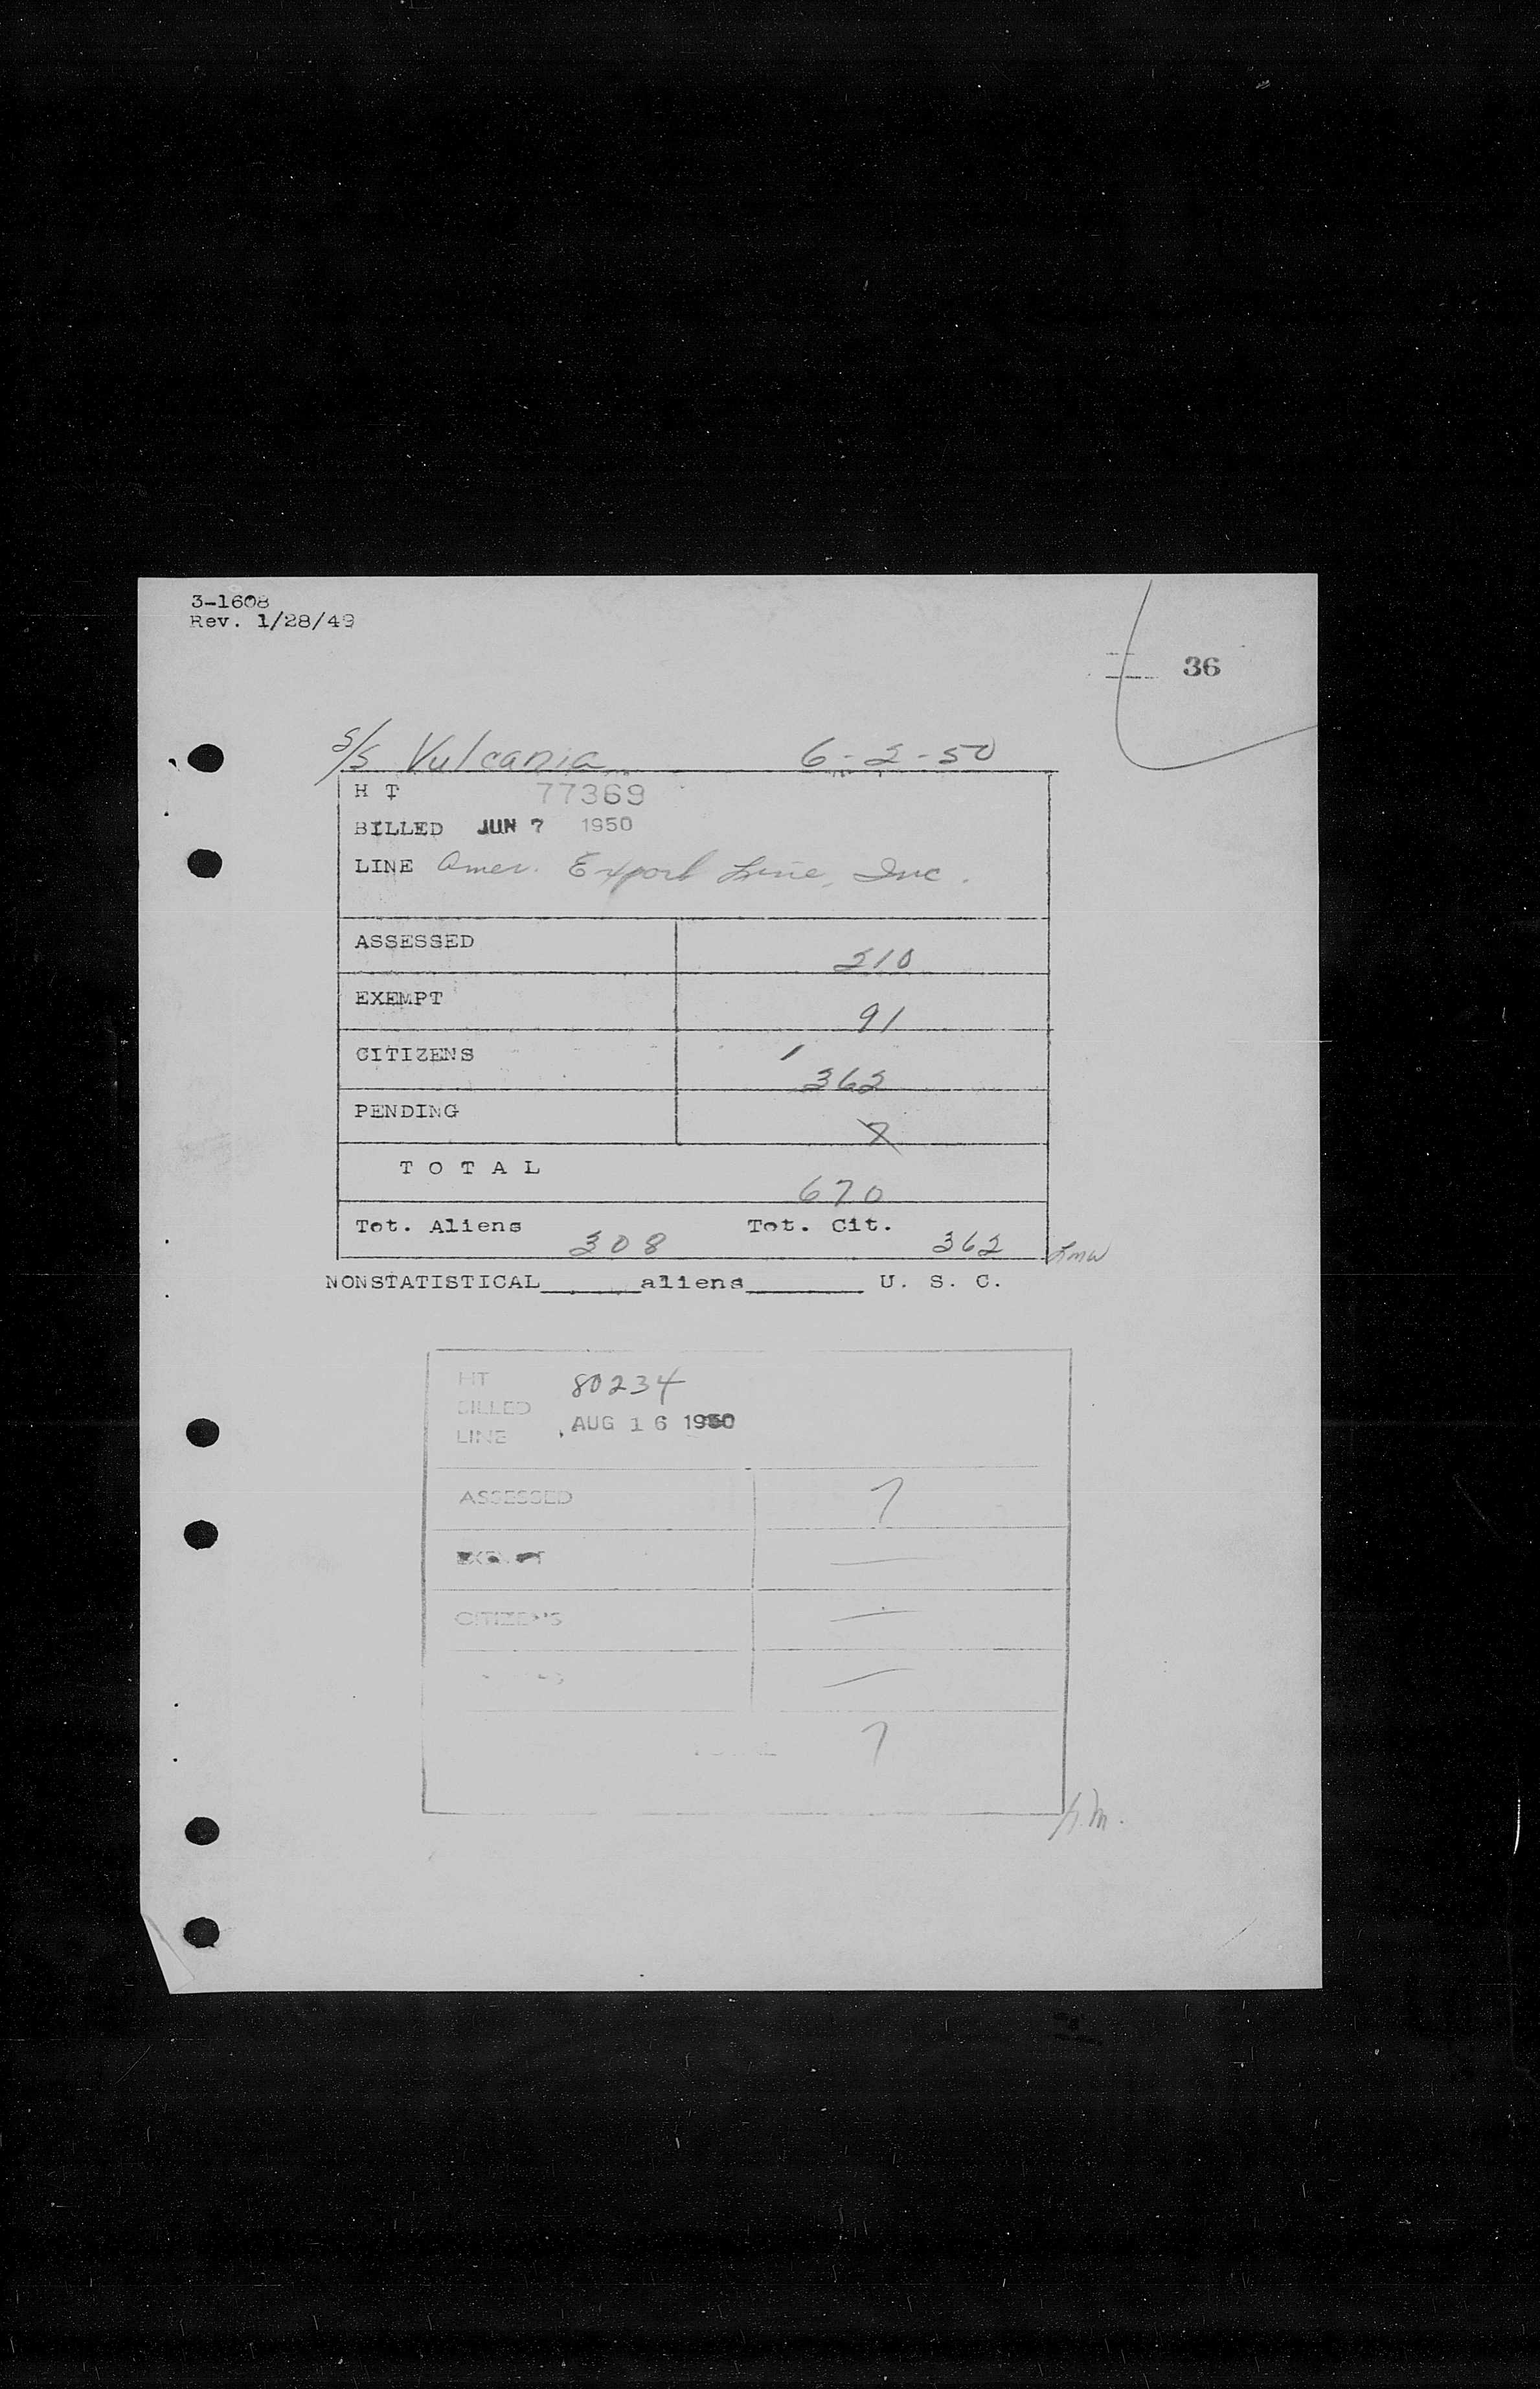 3-1608
Rev. 1/28/49
36
S/S Vulcania 6-2-50
H T 77369
BILLED JUN 7 1950
LINE Amer. Export Line, Inc.
ASSESSED 210
EXEMPT 91
CITIZENS 362
PENDING 7
T O T A L 670
Tot. Aliens 308 Tot. Cit. 362
NONSTATISTICAL______aliens_______ U. S. C.
HT 80234
BILLED AUG 16 1950
LINE
ASSESSED 7
EXEMPT —
CITIZENS —
—
TOTAL 7